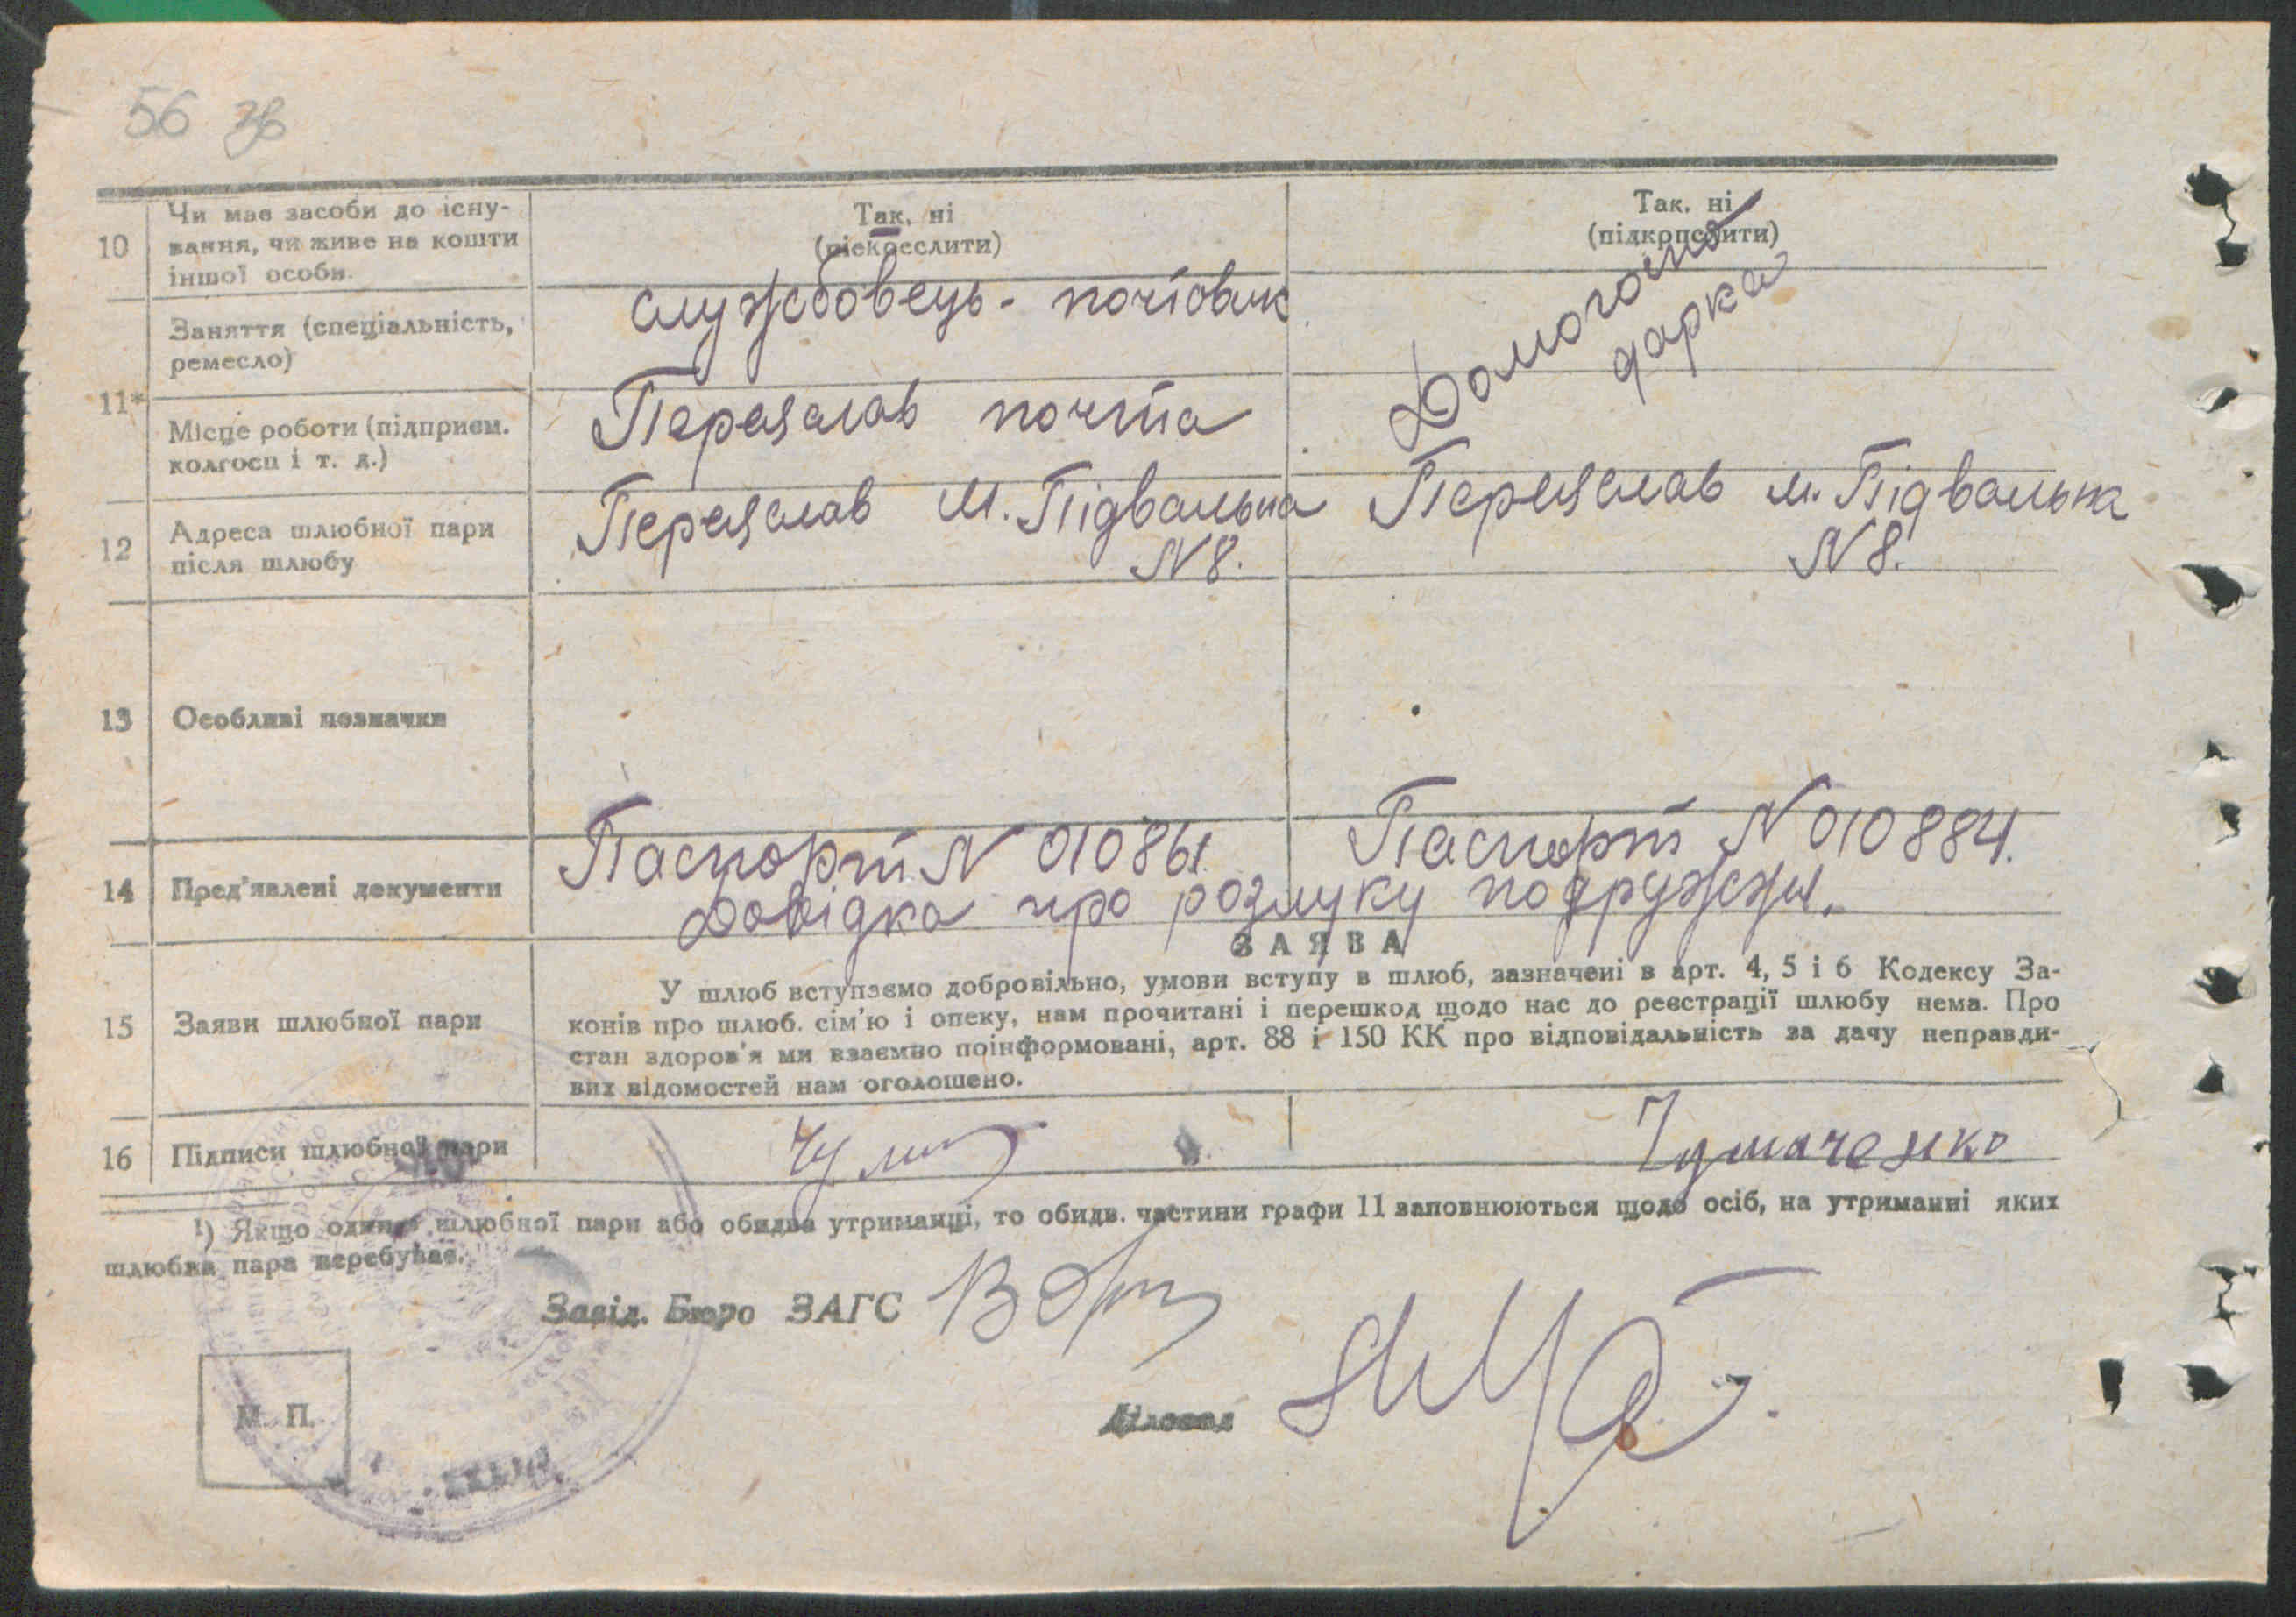 56 зв
10
Чи має засоби до існу-
вання, чи живе на кошти
іншої особи.
Так, ні
(підкреслити)
Так, ні
(підкреслити)
11*
Заняття (спеціальність,
ремесло)
службовець - почтовик
Домогоспо
дарка
Місце роботи (підприєм.
колгосп і т. д.)
Переяслав почта
12
Адреса шлюбної пари
після шлюбу
Переяслав М. Підвальна
N 8.
Переяслав м. Підвальна
N 8.
13
Особливі позначки
14
Пред'явлені документи
Паспорт N 010861
Паспорт N 010884.
Довідка про розлуку подружжя.
15
Заяви шлюбної пари
ЗАЯВА
У шлюб вступаємо добровільно, умови вступу в шлюб, зазначені в арт. 4, 5 і 6 Кодексу За-
конів про шлюб. сім'ю і опеку, нам прочитані і перешкод щодо нас до реєстрації шлюбу нема. Про
стан здоров'я ми взаємно поінформовані, арт. 88 і 150 КК про відповідальність за дачу неправди-
вих відомостей нам оголошено.
16
Підписи шлюбної пари
¹) Якщо один з шлюбної пари або обидва утриманці, то обидв. частини графи 11 заповнюються щодо осіб, на утриманні яких
шлюбна пара перебуває.
Завід. Бюро ЗАГС
Діловод
М. П.